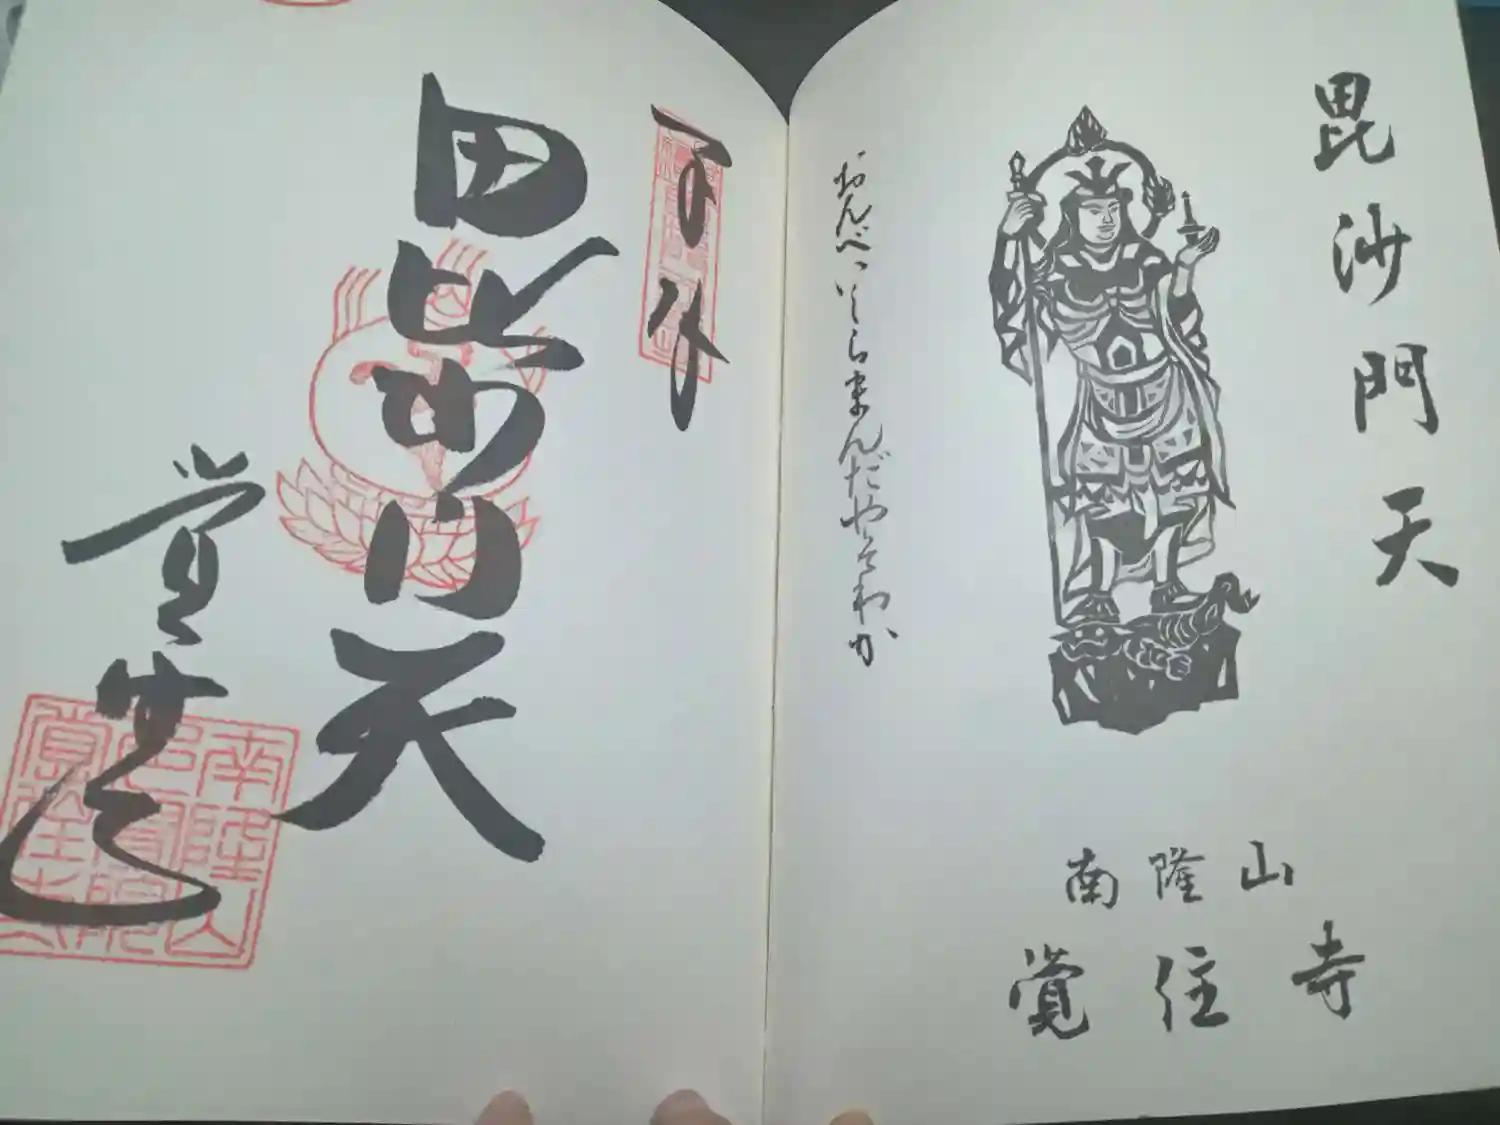 毘沙門天
おんべいしらまんだやそわか
南隆山
覚住寺
奉拝
毘沙門天
覚住寺
南隆山
覚住寺